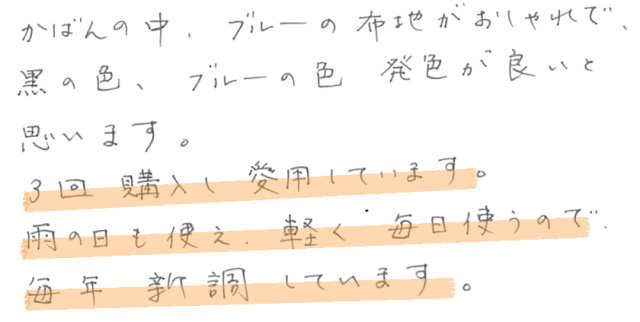 かばんの中、ブルーの布地がおしゃれで、
黒の色、ブルーの色 発色が良いと
思います。
3回 購入し 愛用しています。
雨の日も使え、軽く 毎日使うので、
毎年 新調しています。